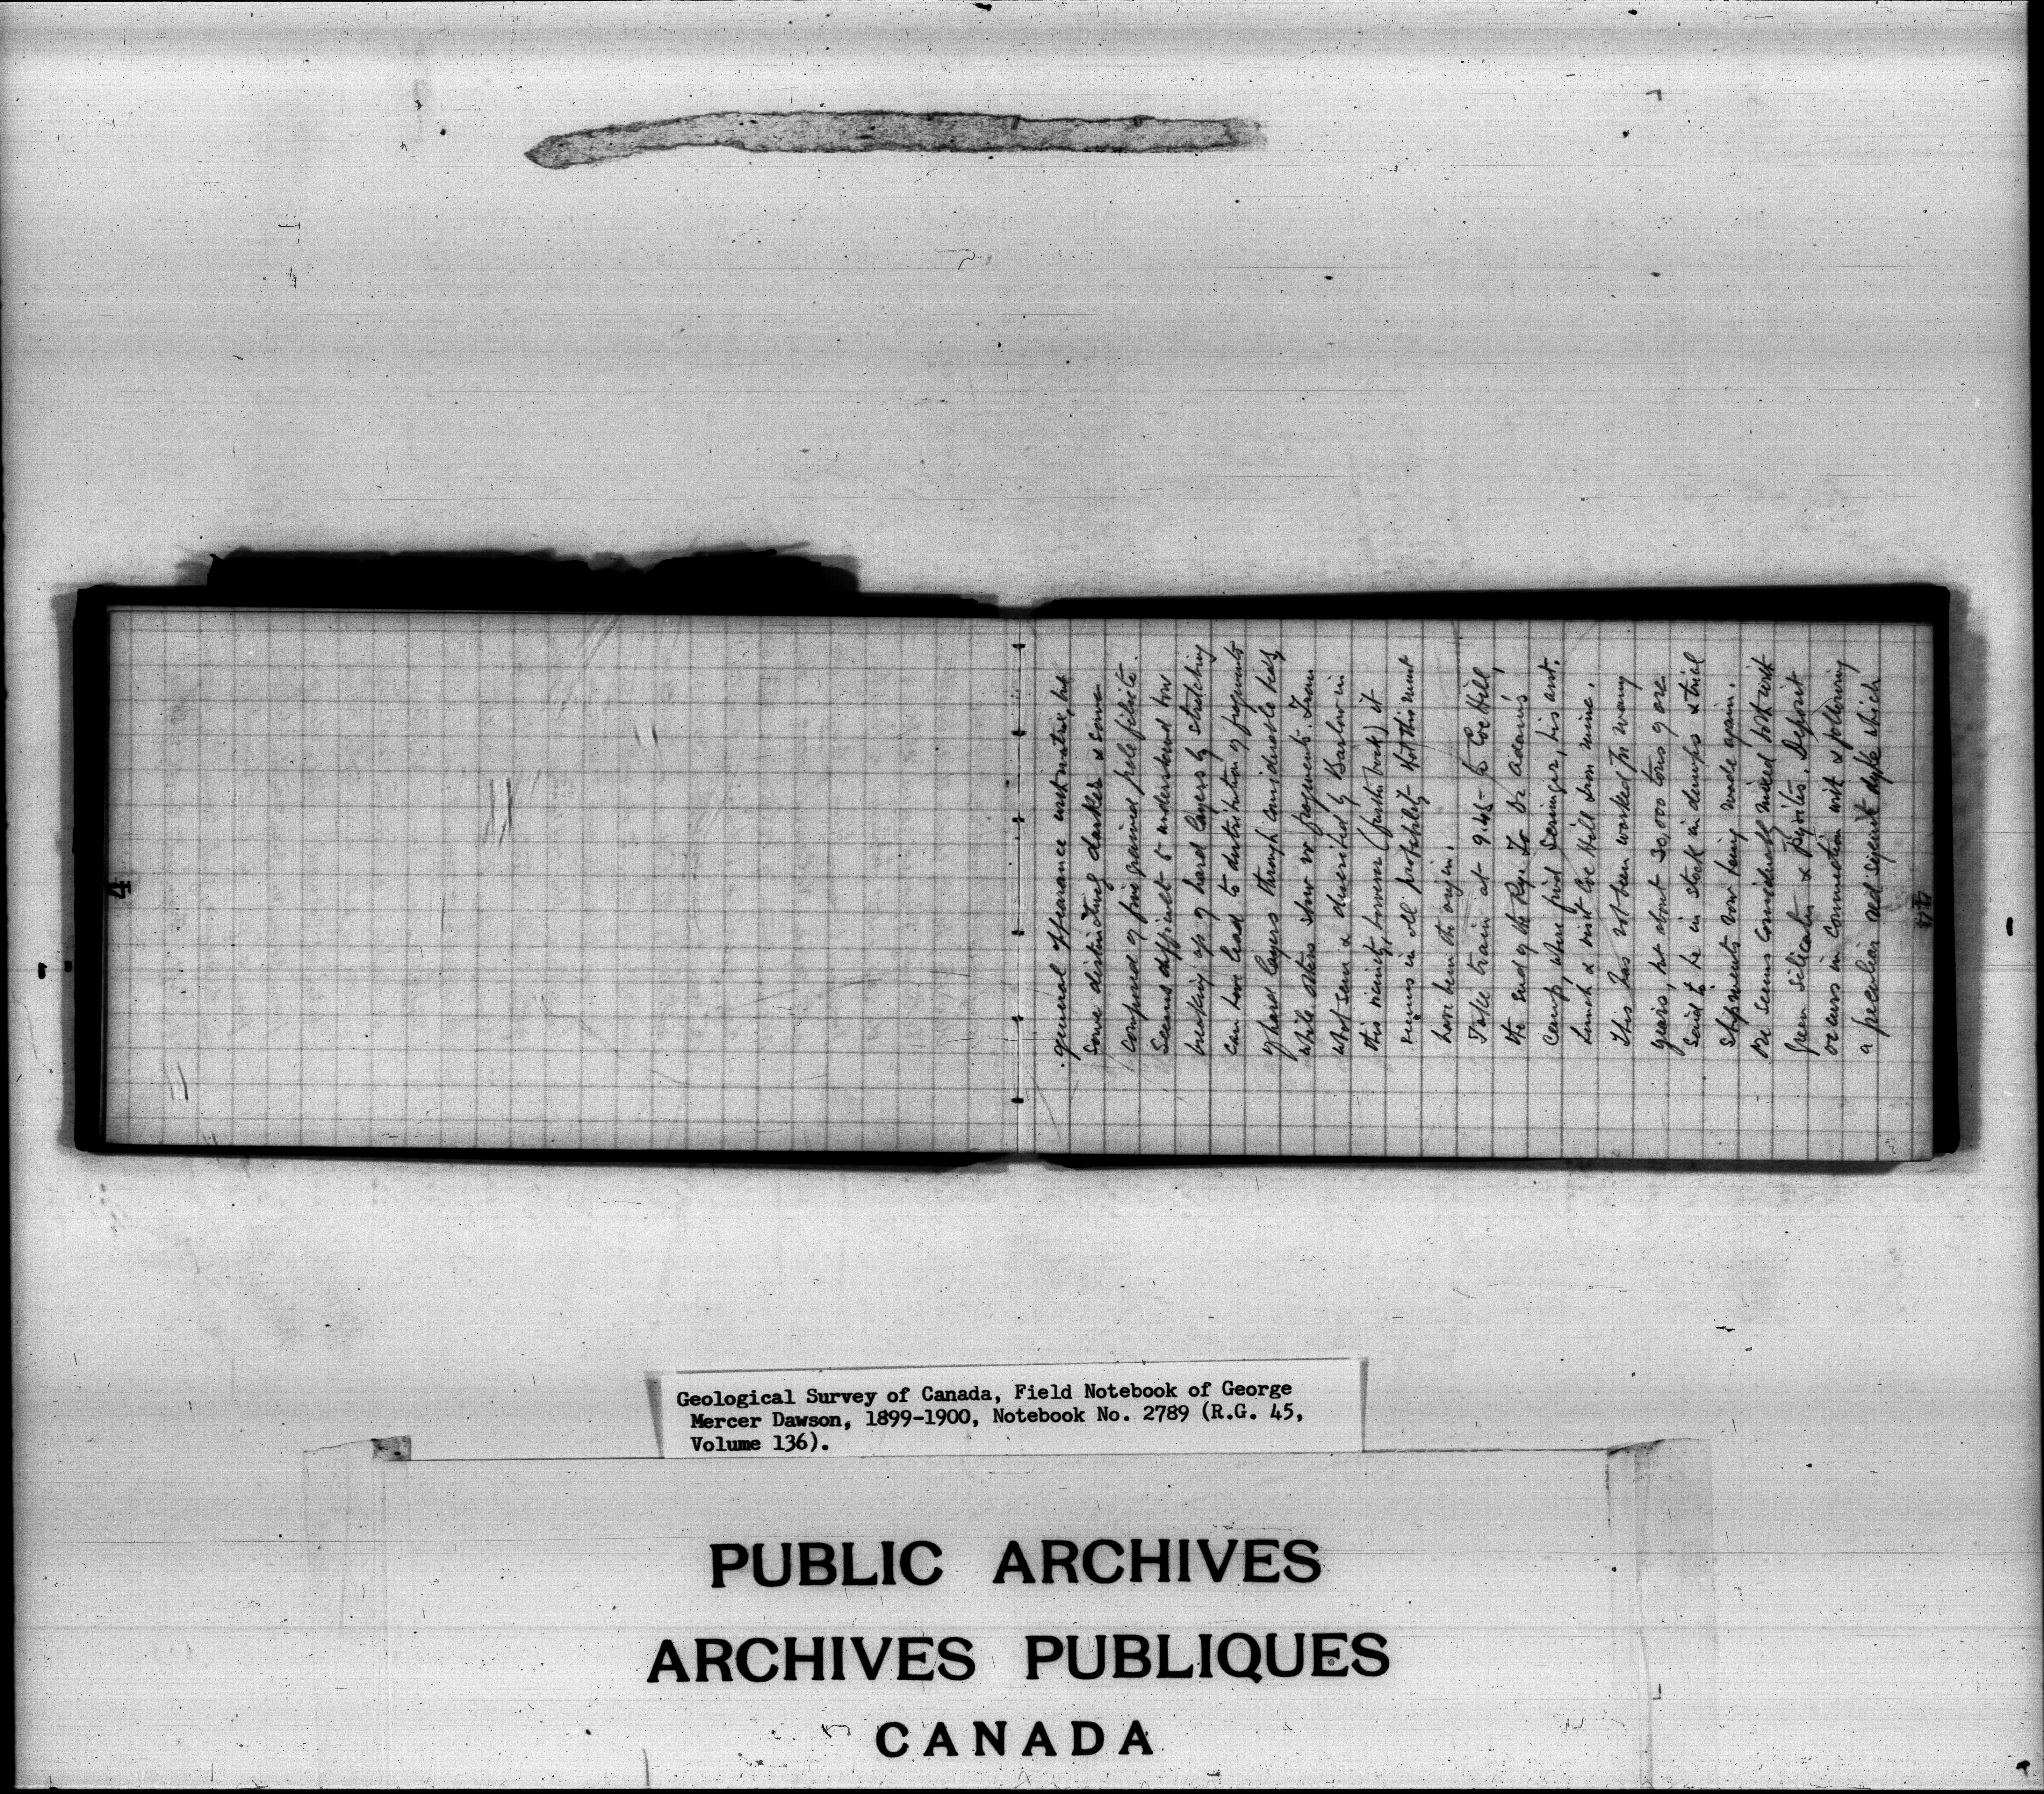 4
general appearance with matrix, but
some distinctly darker & some
composed of fine grained pale felsite.
Seems difficult to understand how
breaking up of hard layers by stretching
can have lead to distribution of fragments
of hard layers through considerable beds,
while others show no fragments. From
what seen & described by Barlow in
this vicinity, however (further back) it
seems in all probability that this must
have been the origin.
Take train at 9.45 to Coe Hill,
the end of the Rye. To Dr Adams
Camp, where find , his asst.
Lunch & visit Coe Hill Iron mine.
This has not been worked for many
years, but about 30,000 tons of ore
said to be in stock in dumps & trial
shipments now being made again.
Ore seems considerably mixed both with
green silicates & Pyrites. Deposit
occurs in connection with & following
a peculiar red syenite dyke which
44
Geological Survey of Canada, Field Notebook of George
Mercer Dawson, 1899-1900, Notebook No. 2789 (R.G. 45,
Volume 136).
PUBLIC ARCHIVES
ARCHIVES PUBLIQUES
CANADA